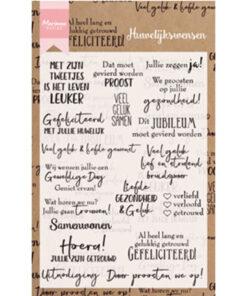 Al heel lang en
gelukkig getrouwd
GEFELICITEERD!
Veel geluk & liefde
Marianne
DESIGN
Huwelijkswensen
MET ZIJN
TWEETJES
IS HET LEVEN
LEUKER
Dat moet
gevierd worden
PROOST
Jullie zeggen ja!
We proosten
op jullie
gezondheid!
VEEL
GELUK
SAMEN
Gefeliciteerd
MET JULLIE HUWELIJK
Dit JUBILEUM
moet gevierd worden
Veel geluk & liefde gewenst
Veel geluk
lief en stralend
bruidspaar
Wij wensen jullie een
Geweldige Dag
Geniet ervan!
Liefde
GEZONDHEID
& Geluk
verliefd
verloofd
getrouwd
Wat horen we nu?
Jullie gaan trouwen!
Samenwonen
Al heel lang en
gelukkig getrouwd
GEFELICITEERD!
Hoera!
JULLIE ZIJN GETROUWD
Wat horen we nu?
Uitnodiging
Daar proosten we op!